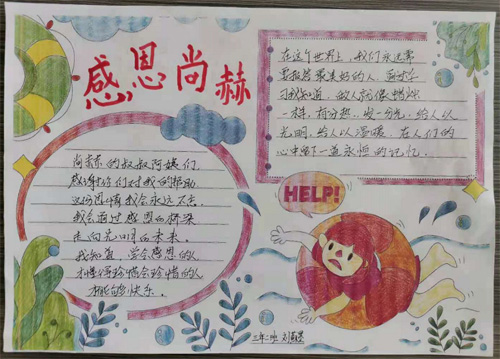 感恩尚赫
在这个世界上,我们永远需
要报答最美好的人,
我知道,做人就像蜡烛
一样,有分热,发一分光,给人以
光明,给人以温暖,在人们的
心中留下一道永恒的记忆.
尚赫的叔叔阿姨们,
感谢你们对我的帮助
这份恩情我会永远不忘.
我会通过感恩的桥梁
走向光明的未来.
我知道,学会感恩的人
才懂得珍惜会珍惜的人
才能够快乐.
HELP!
三年二班 刘